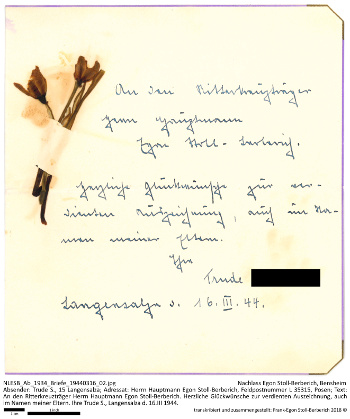 An den Ritterkreuzträger
Herrn Hauptmann
Egon Stoll-Berberich.
Herzliche Glückwünsche zur ver-
dienten Auszeichnung, auch im Na-
men meiner Eltern.
Ihre
Trude
Langensalza d. 16.III.44.
NLESB_Ab_1934_Briefe_19440316_02.jpg Nachlass Egon Stoll-Berberich, Bensheim
Absender: Trude S., 15 Langensalza; Adressat: Herrn Hauptmann Egon Stoll-Berberich, Feldpostnummer L 35315, Posen; Text:
An den Ritterkreuzträger Herrn Hauptmann Egon Stoll-Berberich. Herzliche Glückwünsche zur verdienten Auszeichnung, auch
im Namen meiner Eltern. Ihre Trude S., Langensalza d. 16.III 1944.
transkribiert und zusammengestellt: Fran+Egon Stoll-Berberich 2018 ©